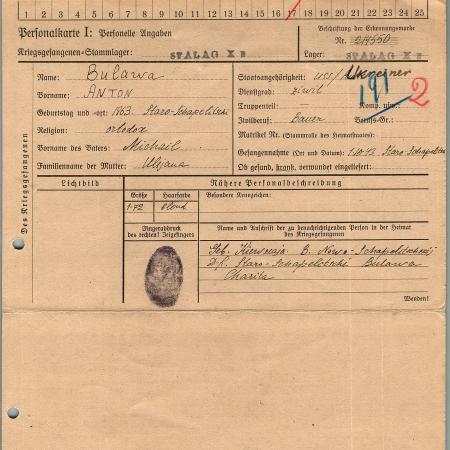 1 2 3 4 5 6 7 8 9 10 11 12 13 14 15 16 17 18 19 20 21 22 23 24 25
Personalkarte I: Personelle Angaben
Kriegsgefangenen-Stammlager: STALAG X B
Beschriftung der Erkennungsmarke
Nr.
Lager: STALAG X B
Des Kriegsgefangenen
Name: Bulawa
Vorname: ANTON
Geburtstag und -ort: 1883 Staro-Schapelitschi
Religion: ortodox
Vorname des Vaters: Michail
Familienname der Mutter: Uljana
Staatsangehörigkeit: USSR Ukrainer
Dienstgrad: Zivil
Truppenteil: Komp. usw.:
Zivilberuf: Bauer Berufs-Gr.:
191 2
Matrikel Nr. (Stammrolle des Heimatstaates):
Gefangennahme (Ort und Datum): 1.10.43 Staro-Schapelitschi
Ob gesund, krank, verwundet eingeliefert:
Lichtbild
Nähere Personalbeschreibung
Größe Haarfarbe
1.72 blond
Besondere Kennzeichen:
Fingerabdruck
des rechten! Zeigefingers
Name und Anschrift der zu benachrichtigenden Person in der Heimat
des Kriegsgefangenen
Geb. B. Nowo-
Staro- Bulawa
Charita
Wenden!